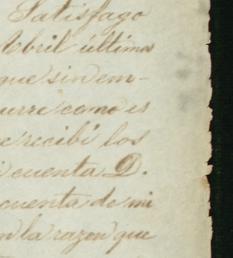 Satisfago
Abril último
que sin em-
urre como es
e recibí los
i cuenta D.
cuenta de mi
n la razon que